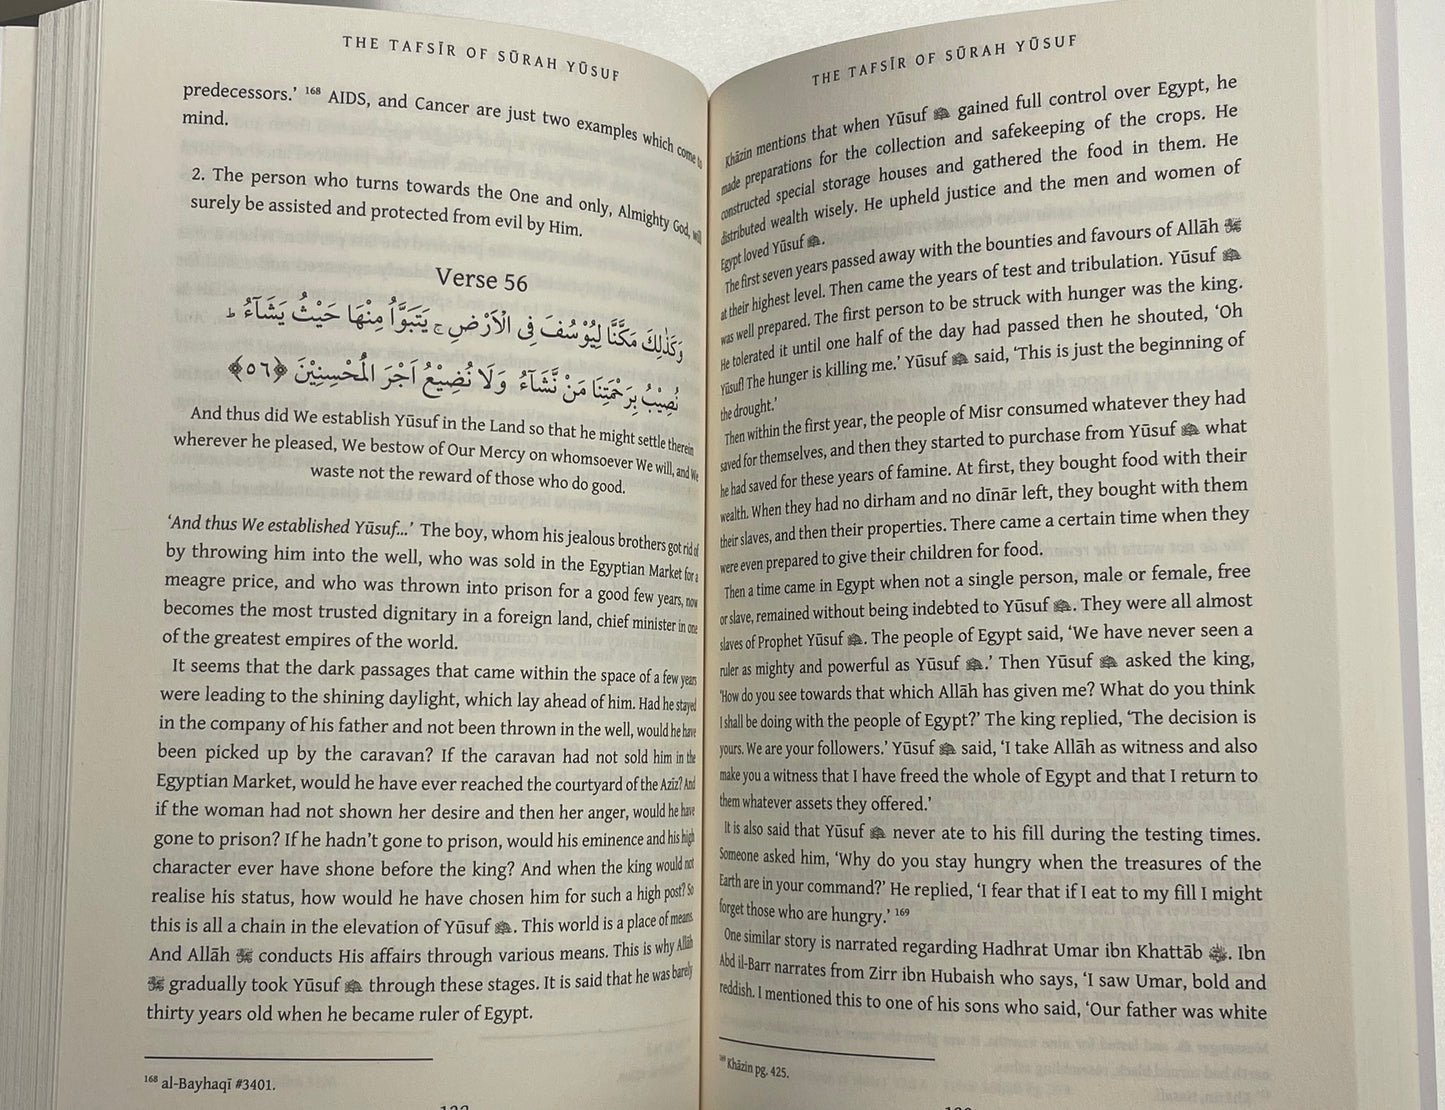 THE TAFSĪR OF SŪRAH YŪSUF
predecessors.’ 168 AIDS, and Cancer are just two examples which come to
mind.
2. The person who turns towards the One and only, Almighty God, will
surely be assisted and protected from evil by Him.
Verse 56
وَكَذٰلِكَ مَكَّنَّا لِيُوْسُفَ فِى الْاَرْضِ ج يَتَبَوَّاُ مِنْهَا حَيْثُ يَشَآءُ ط
نُصِيْبُ بِرَحْمَتِنَا مَنْ نَّشَآءُ وَلَا نُضِيْعُ اَجْرَ الْمُحْسِنِيْنَ ﴿٥٦﴾
And thus did We establish Yūsuf in the Land so that he might settle therein
wherever he pleased, We bestow of Our Mercy on whomsoever We will, and We
waste not the reward of those who do good.
‘And thus We established Yūsuf...’ The boy, whom his jealous brothers got rid of
by throwing him into the well, who was sold in the Egyptian Market for a
meagre price, and who was thrown into prison for a good few years, now
becomes the most trusted dignitary in a foreign land, chief minister in one
of the greatest empires of the world.
It seems that the dark passages that came within the space of a few years
were leading to the shining daylight, which lay ahead of him. Had he stayed
in the company of his father and not been thrown in the well, would he have
been picked up by the caravan? If the caravan had not sold him in the
Egyptian Market, would he have ever reached the courtyard of the Azīz? And
if the woman had not shown her desire and then her anger, would he have
gone to prison? If he hadn’t gone to prison, would his eminence and his high
character ever have shone before the king? And when the king would not
realise his status, how would he have chosen him for such a high post? So
this is all a chain in the elevation of Yūsuf. This world is a place of means.
And Allāh ﷻ conducts His affairs through various means. This is why Allāh
ﷻ gradually took Yūsuf through these stages. It is said that he was barely
thirty years old when he became ruler of Egypt.
168 al-Bayhaqī #3401.
THE TAFSĪR OF SŪRAH YŪSUF
Khāzin mentions that when Yūsuf gained full control over Egypt, he
made preparations for the collection and safekeeping of the crops. He
constructed special storage houses and gathered the food in them. He
distributed wealth wisely. He upheld justice and the men and women of
Egypt loved Yūsuf.
The first seven years passed away with the bounties and favours of Allāh ﷻ
at their highest level. Then came the years of test and tribulation. Yūsuf
was well prepared. The first person to be struck with hunger was the king.
He tolerated it until one half of the day had passed then he shouted, ‘Oh
Yūsuf! The hunger is killing me.’ Yūsuf said, ‘This is just the beginning of
the drought.’
Then within the first year, the people of Misr consumed whatever they had
saved for themselves, and then they started to purchase from Yūsuf what
he had saved for these years of famine. At first, they bought food with their
wealth. When they had no dirham and no dīnār left, they bought with them
their slaves, and then their properties. There came a certain time when they
were even prepared to give their children for food.
Then a time came in Egypt when not a single person, male or female, free
or slave, remained without being indebted to Yūsuf. They were all almost
slaves of Prophet Yūsuf. The people of Egypt said, ‘We have never seen a
ruler as mighty and powerful as Yūsuf.’ Then Yūsuf asked the king,
‘How do you see towards that which Allāh has given me? What do you think
I shall be doing with the people of Egypt?’ The king replied, ‘The decision is
yours. We are your followers.’ Yūsuf said, ‘I take Allāh as witness and also
make you a witness that I have freed the whole of Egypt and that I return to
them whatever assets they offered.’
It is also said that Yūsuf never ate to his fill during the testing times.
Someone asked him, ‘Why do you stay hungry when the treasures of the
Earth are in your command?’ He replied, ‘I fear that if I eat to my fill I might
forget those who are hungry.’ 169
One similar story is narrated regarding Hadhrat Umar ibn Khattāb. Ibn
Abd il-Barr narrates from Zirr ibn Hubaish who says, ‘I saw Umar, bold and
reddish. I mentioned this to one of his sons who said, ‘Our father was white
169 Khāzin pg. 425.